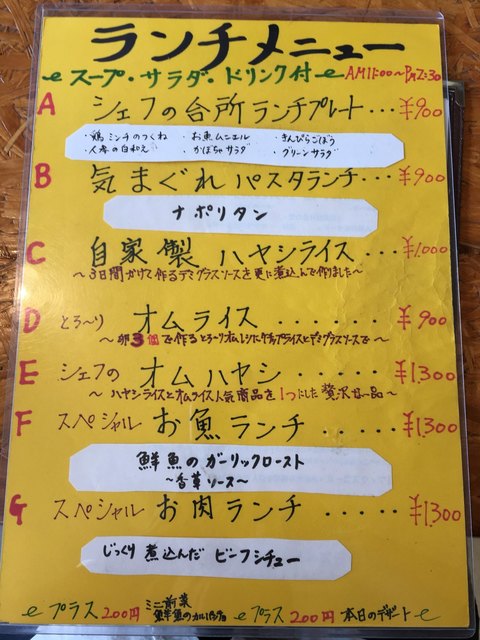 ランチメニュー
スープ・サラダ・ドリンク付 AM11:00~PM2:30
A シェフの台所ランチプレート・・・¥900
・鶏ミンチのつくね ・お魚ムニエル ・きんぴらごぼう
・人参の白和え ・かぼちゃサラダ ・グリーンサラダ
B 気まぐれパスタランチ・・・¥900
ナポリタン
C 自家製ハヤシライス・・・¥1.000
~3日間かけて作るデミグラスソースを更に煮込んで作りました~
D とろ~りオムライス・・・・・・¥900
~卵3個で作るとろ~りオムレツにケチャップライスとデミグラスソースで~
E シェフのオムハヤシ・・・・・¥1.300
~ハヤシライスとオムライス人気商品を1つにした贅沢な一品~
F スペシャルお魚ランチ・・・・・¥1.300
鮮魚のガーリックロースト
~香草ソース~
G スペシャルお肉ランチ・・・・・¥1300
じっくり煮込んだビーフシチュー
プラス200円 ミニ前菜 鮮魚のカルパッチョ プラス200円 本日のデザート